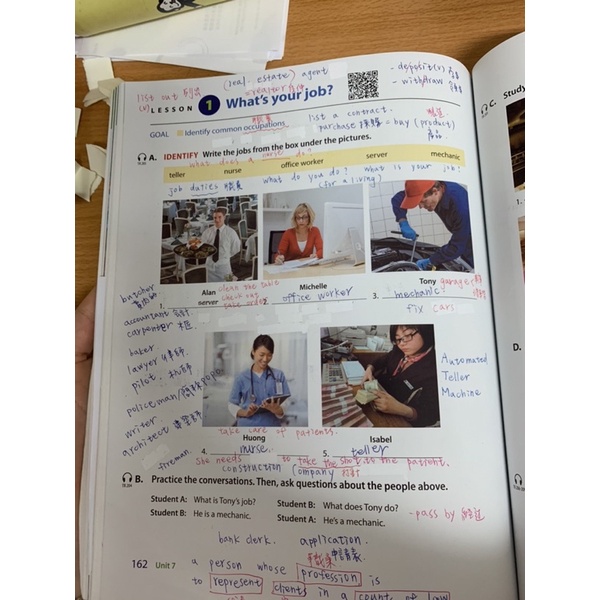 (real estate) agent
- deposit(v)
list out 列出
(v)
- withdraw
LESSON 1 What's your job?
職業
list a contract.
GOAL Identify common occupations
purchase 採購 = buy (product)
A. IDENTIFY Write the jobs from the box under the pictures.
what does a nurse do?
teller nurse office worker server mechanic
job duties
what do you do? what is your job?
(for a living)
Alan
Michelle
Tony
garage
clean the table
check out
take order
1. server
2. office worker
3. mechanic
fix cars
butcher
accountant
carpenter
baker
lawyer
pilot
policeman
writer
architect
fireman
Automated
Teller
Machine
take care of patients.
Huong
Isabel
4. nurse
5. teller
She needs to take the shot to the patient.
construction company
B. Practice the conversations. Then, ask questions about the people above.
Student A: What is Tony's job? Student B: What does Tony do?
Student B: He is a mechanic. Student A: He's a mechanic.
- pass by 經過
bank clerk. application.
申請表
162 Unit 7
a person whose profession is
to represent clients in a courts of law
C. Study
1.
D.